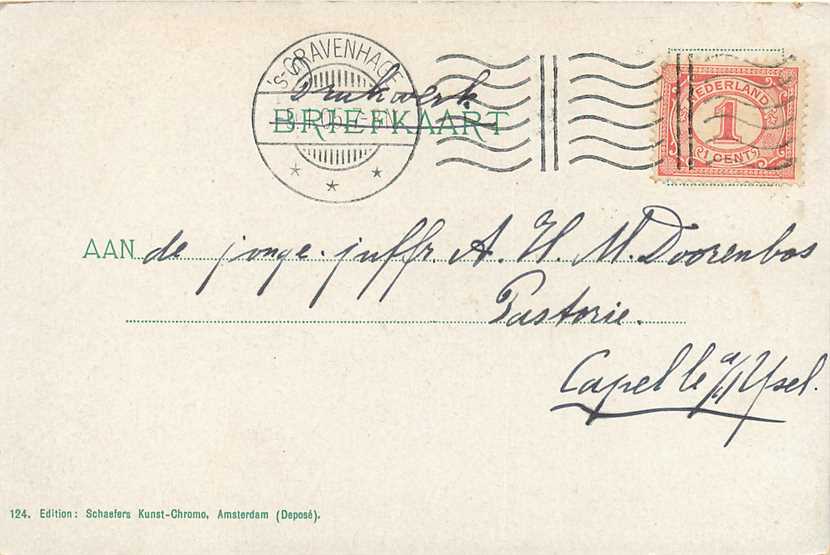 'S-GRAVENHAGE
Drukwerk
BRIEFKAART
NEDERLAND
1
(1 CENT)
AAN de jonge juffr. A. H. M. Doorenbos
Pastorie.
Capelle a/d Ysel.
124. Edition: Schaefers Kunst-Chromo, Amsterdam (Deposé).